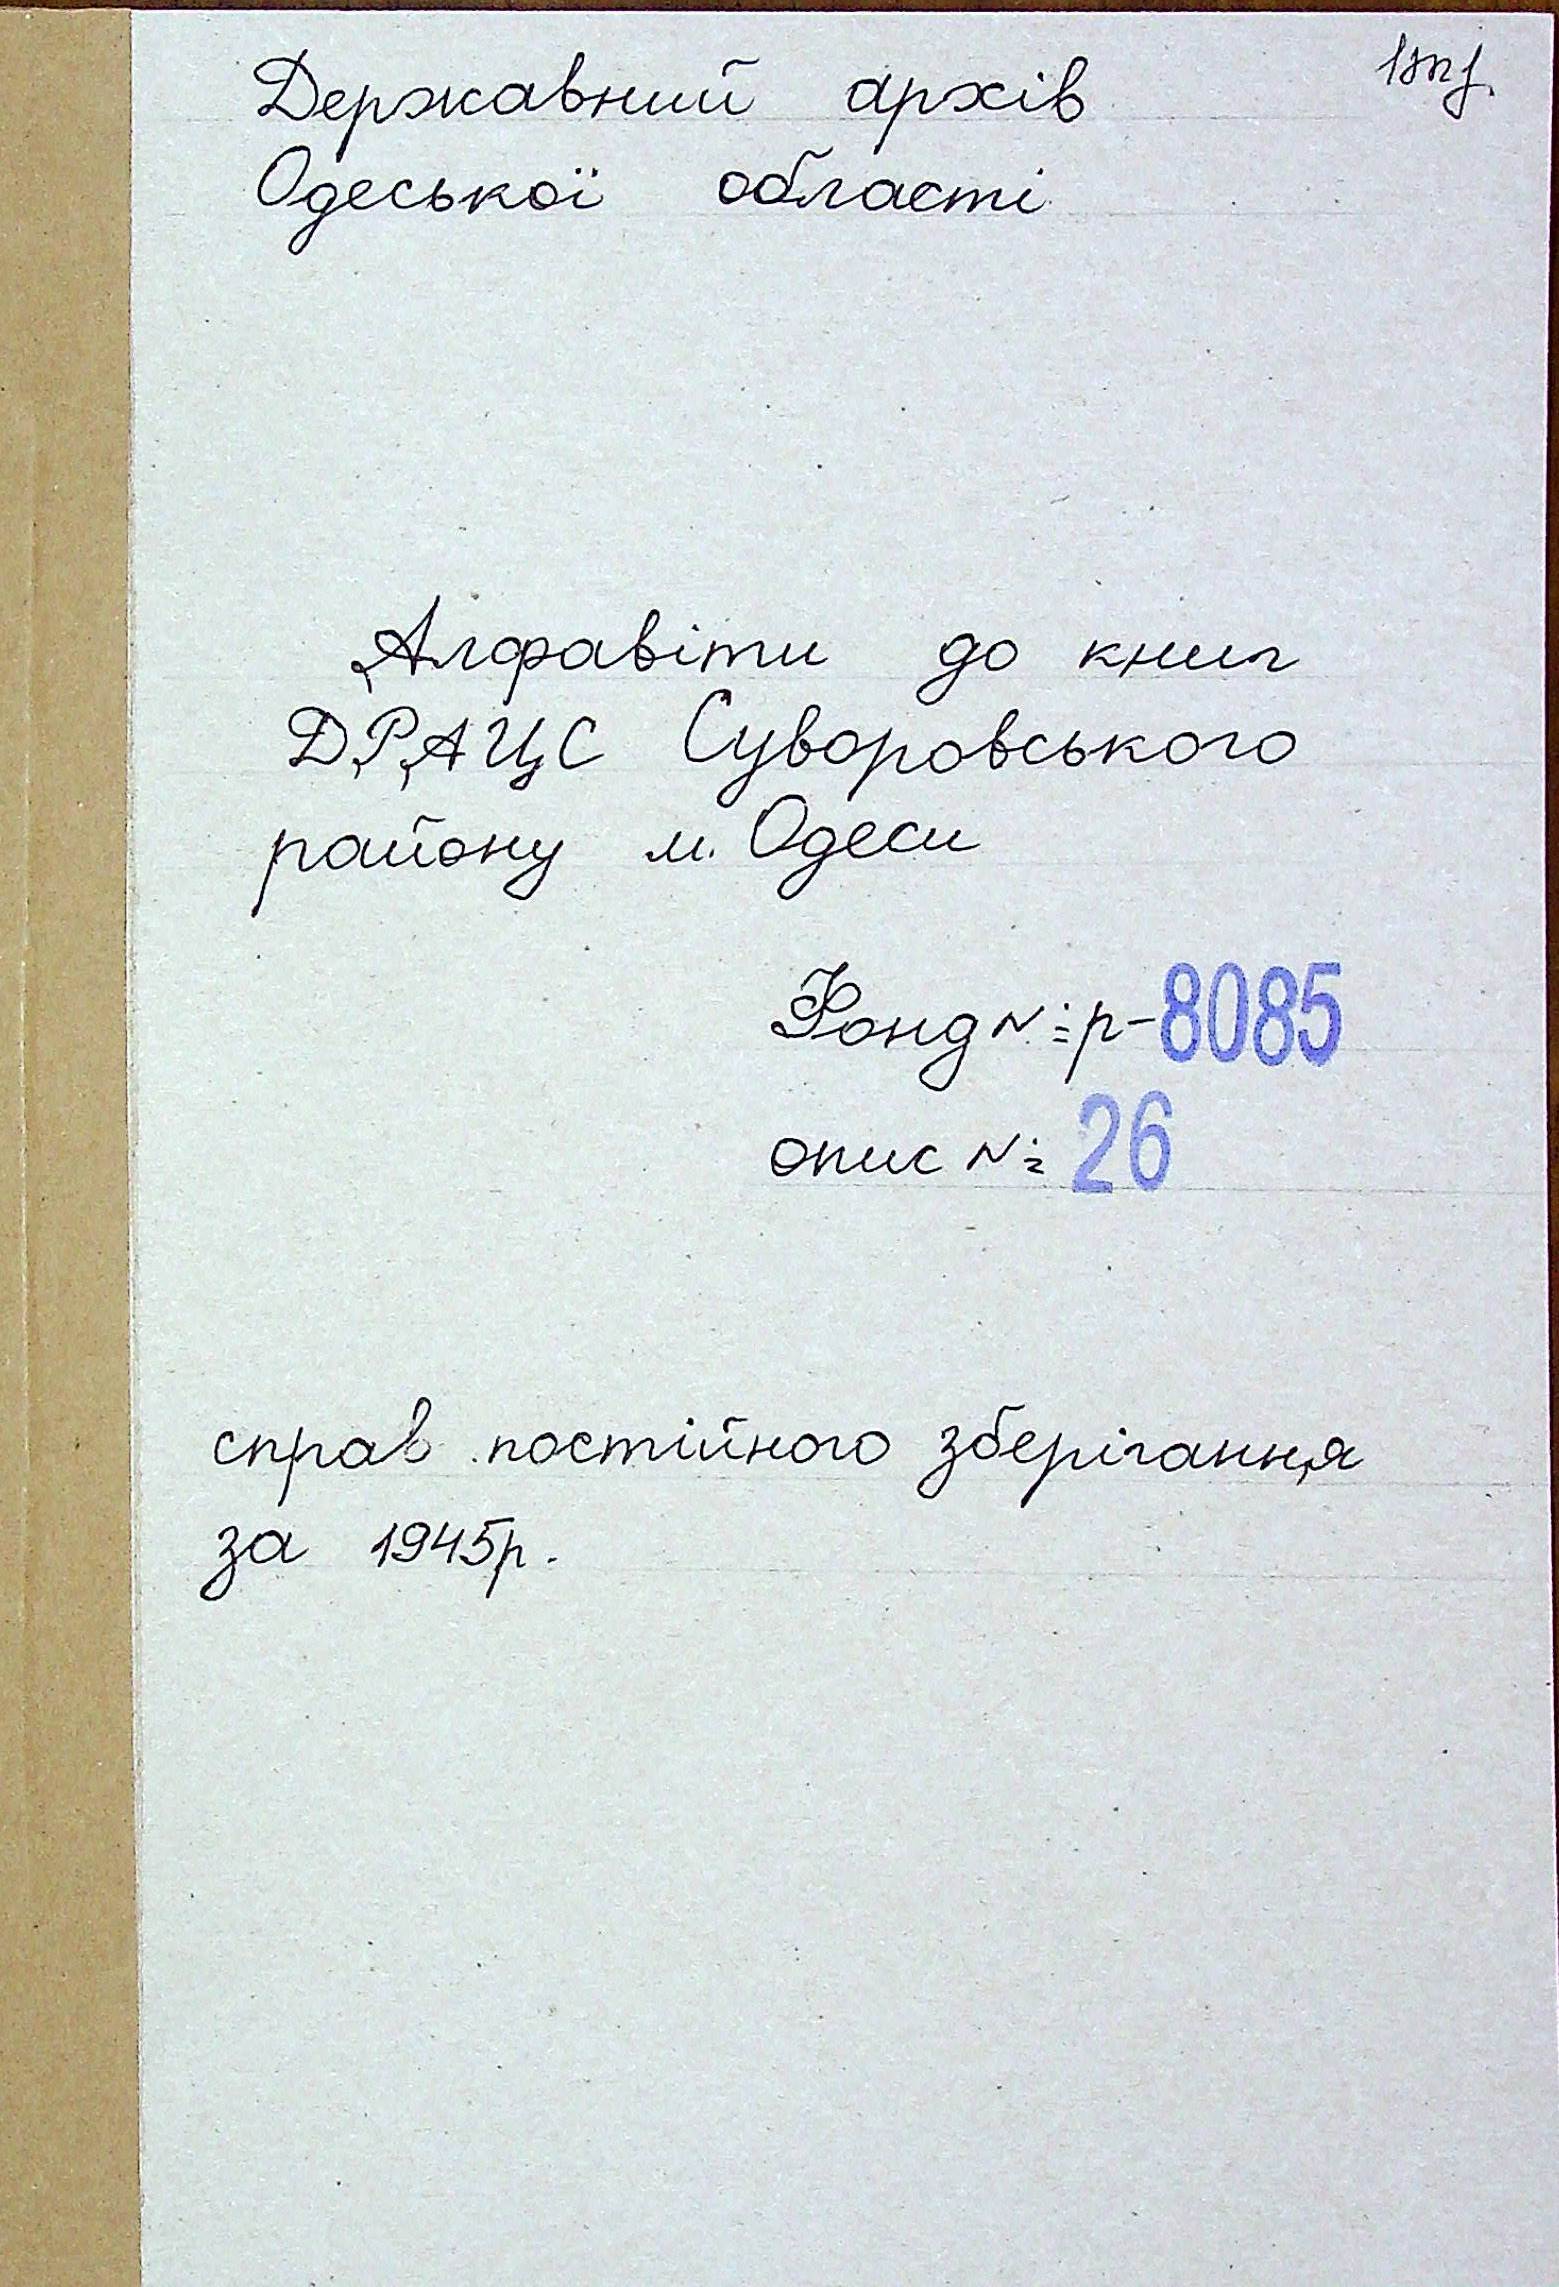 Державний архів
Одеської області
Алфавіти до книг
ДРАЦС Суворовського
району м. Одеси
Фонд № р-8085
опис № 26
справ постійного зберігання
за 1945р.